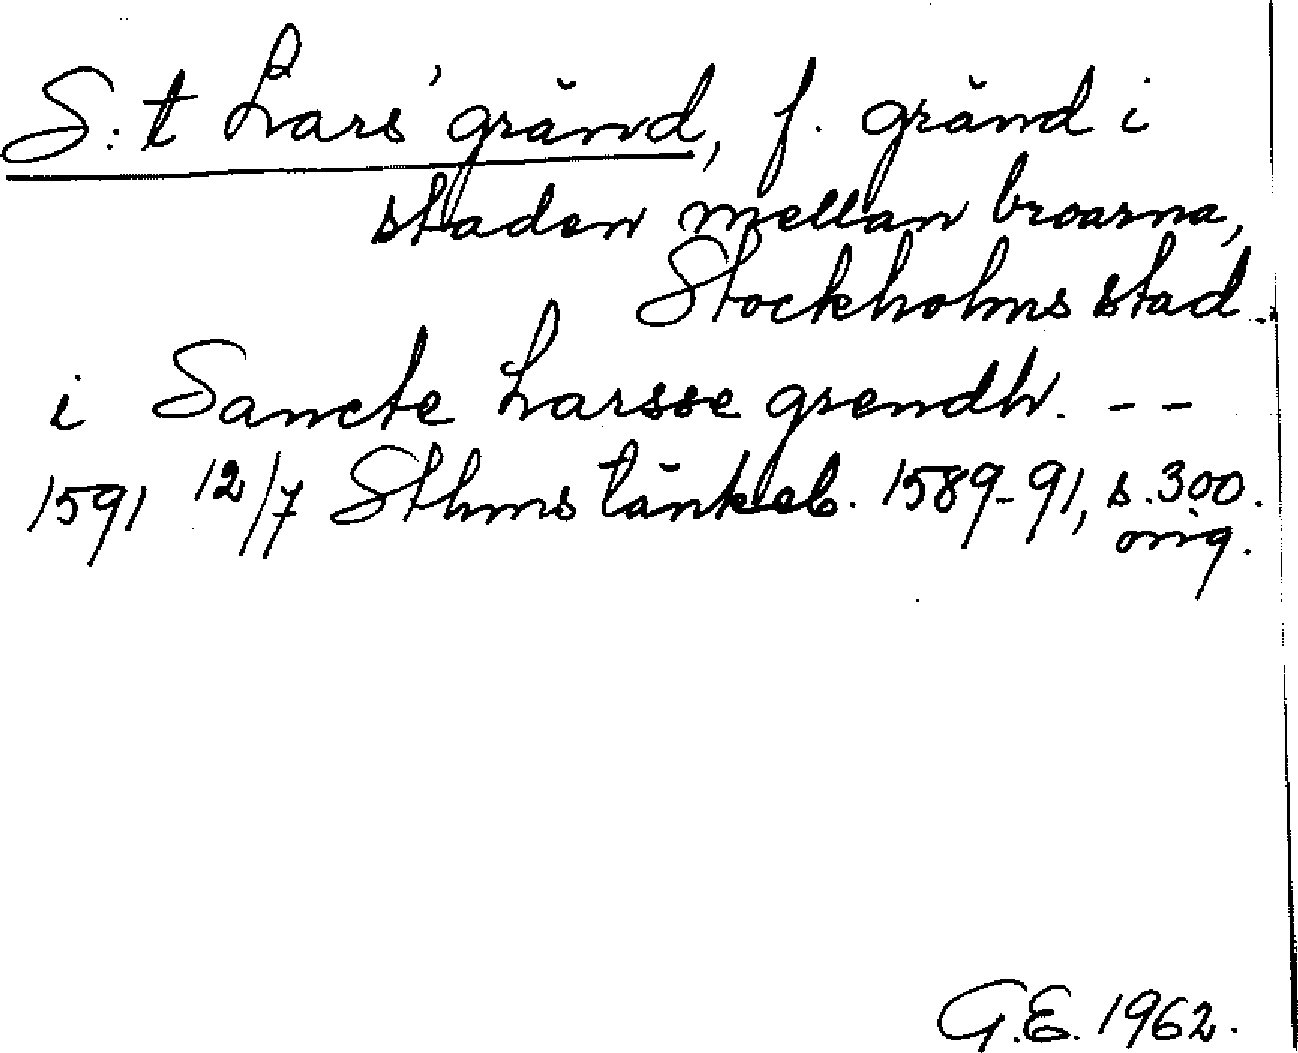 S:t Lars' gränd, f. gränd i
staden mellan broarna,
Stockholms stad.
i Sancte Larsse grendh. - -
1591 12/7 Sthms tänkeb. 1589-91, s. 300.
orig.
G.E. 1962.